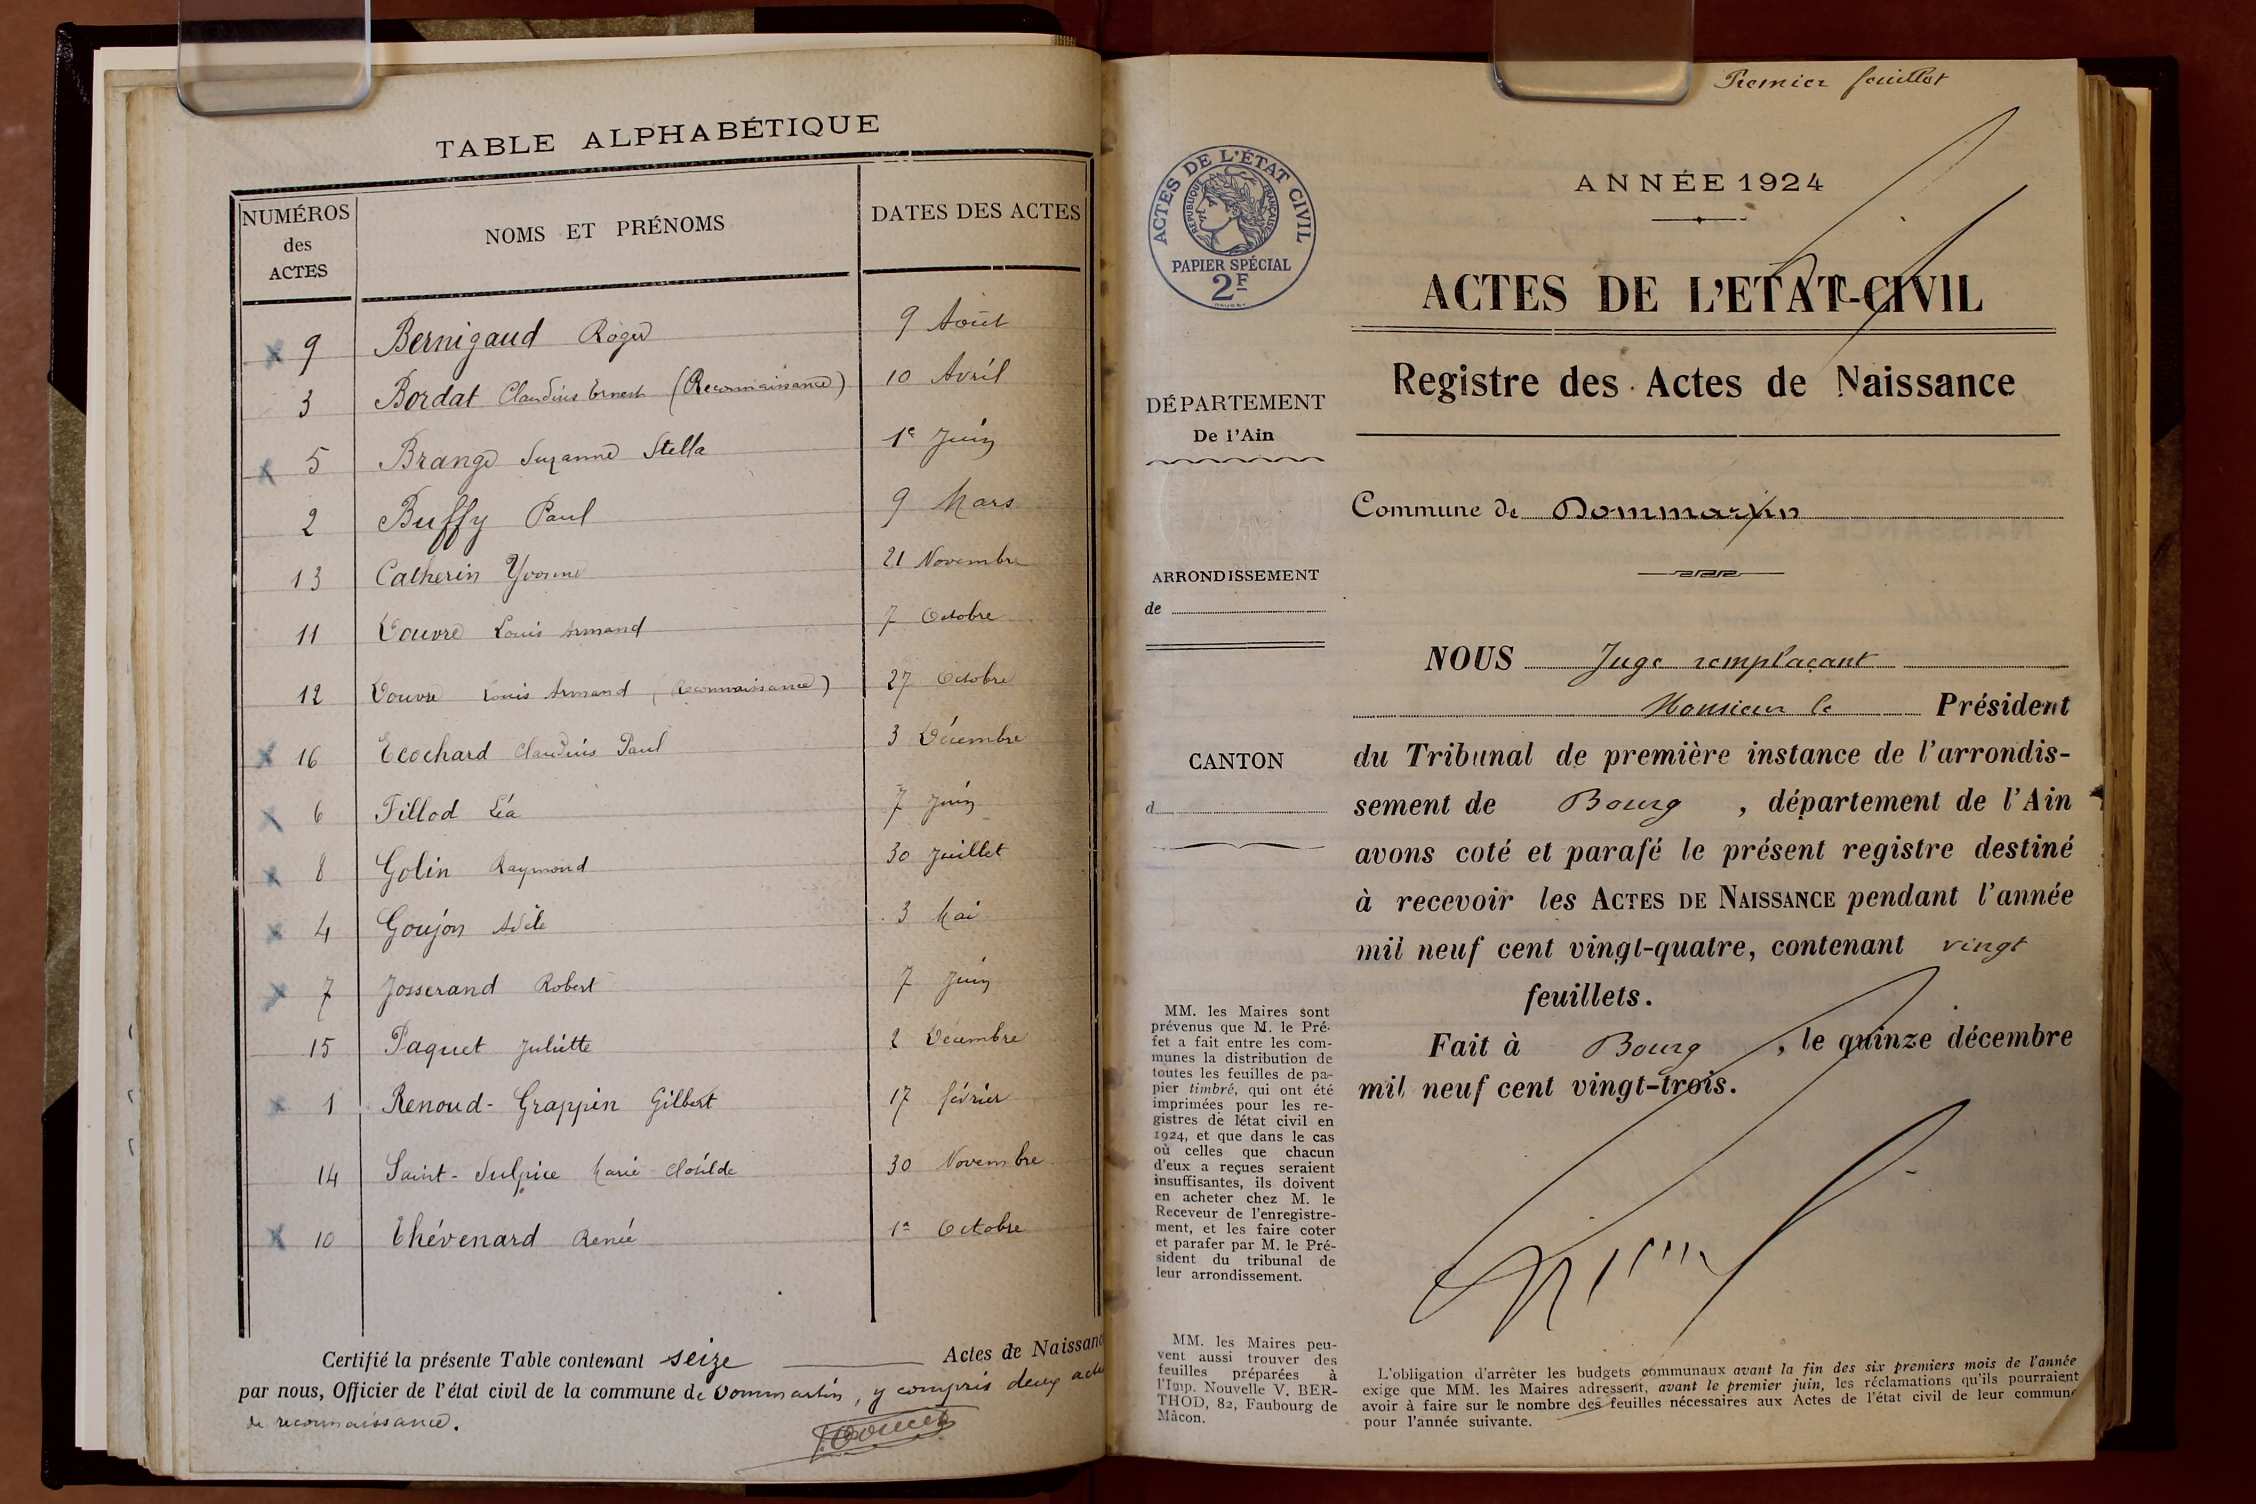 TABLE ALPHABÉTIQUE
NUMÉROS des ACTES NOMS ET PRÉNOMS DATES DES ACTES
x 9 Bernigaud Roger 9 Août
3 Bordat Claudius Ernest (Reconnaissance) 10 Avril
x 5 Brange Suzanne Stella 1e Juin
2 Buffy Paul 9 Mars
13 Catherin Yvonne 21 Novembre
11 Douvre Louis Armand 7 Octobre
12 Douvre Louis Armand (Reconnaissance) 27 Octobre
x 16 Ecochard Claudius Paul 3 Décembre
x 6 Fillod Léa 7 Juin
x 8 Golin Raymond 30 Juillet
x 4 Goujon Adèle 3 Mai
x 7 Josserand Robert 7 Juin
15 Paquet Juliette 2 Décembre
x 1 Renoud-Grappin Gilbert 17 février
14 Saint-Sulpice Marie Clotilde 30 Novembre
x 10 Thévenard Renée 1e Octobre
Certifié la présente Table contenant seize Actes de Naissanc
par nous, Officier de l'état civil de la commune de Dommartin, y compris deux actes
de reconnaissance.
Premier feuillet
ACTES DE L'ÉTAT CIVIL
RÉPUBLIQUE FRANÇAISE
PAPIER SPÉCIAL
2F
ANNÉE 1924
ACTES DE L'ETAT-CIVIL
Registre des Actes de Naissance
DÉPARTEMENT
De l'Ain
ARRONDISSEMENT
de
CANTON
d
MM. les Maires sont
prévenus que M. le Pré-
fet a fait entre les com-
munes la distribution de
toutes les feuilles de pa-
pier timbré, qui ont été
imprimées pour les re-
gistres de létat civil en
1924, et que dans le cas
où celles que chacun
d'eux a reçues seraient
insuffisantes, ils doivent
en acheter chez M. le
Receveur de l'enregistre-
ment, et les faire coter
et parafer par M. le Pré-
sident du tribunal de
leur arrondissement.
MM. les Maires peu-
vent aussi trouver des
feuilles préparées à
l'Imp. Nouvelle V. BER-
THOD, 82, Faubourg de
Mâcon.
Commune de Dommartin
NOUS Juge remplaçant
Monsieur le Président
du Tribunal de première instance de l'arrondis-
sement de Bourg, département de l'Ain
avons coté et parafé le présent registre destiné
à recevoir les ACTES DE NAISSANCE pendant l'année
mil neuf cent vingt-quatre, contenant vingt
feuillets.
Fait à Bourg, le quinze décembre
mil neuf cent vingt-trois.
L'obligation d'arrêter les budgets communaux avant la fin des six premiers mois de l'année
exige que MM. les Maires adressent, avant le premier juin, les réclamations qu'ils pourraient
avoir à faire sur le nombre des feuilles nécessaires aux Actes de l'état civil de leur commune
pour l'année suivante.